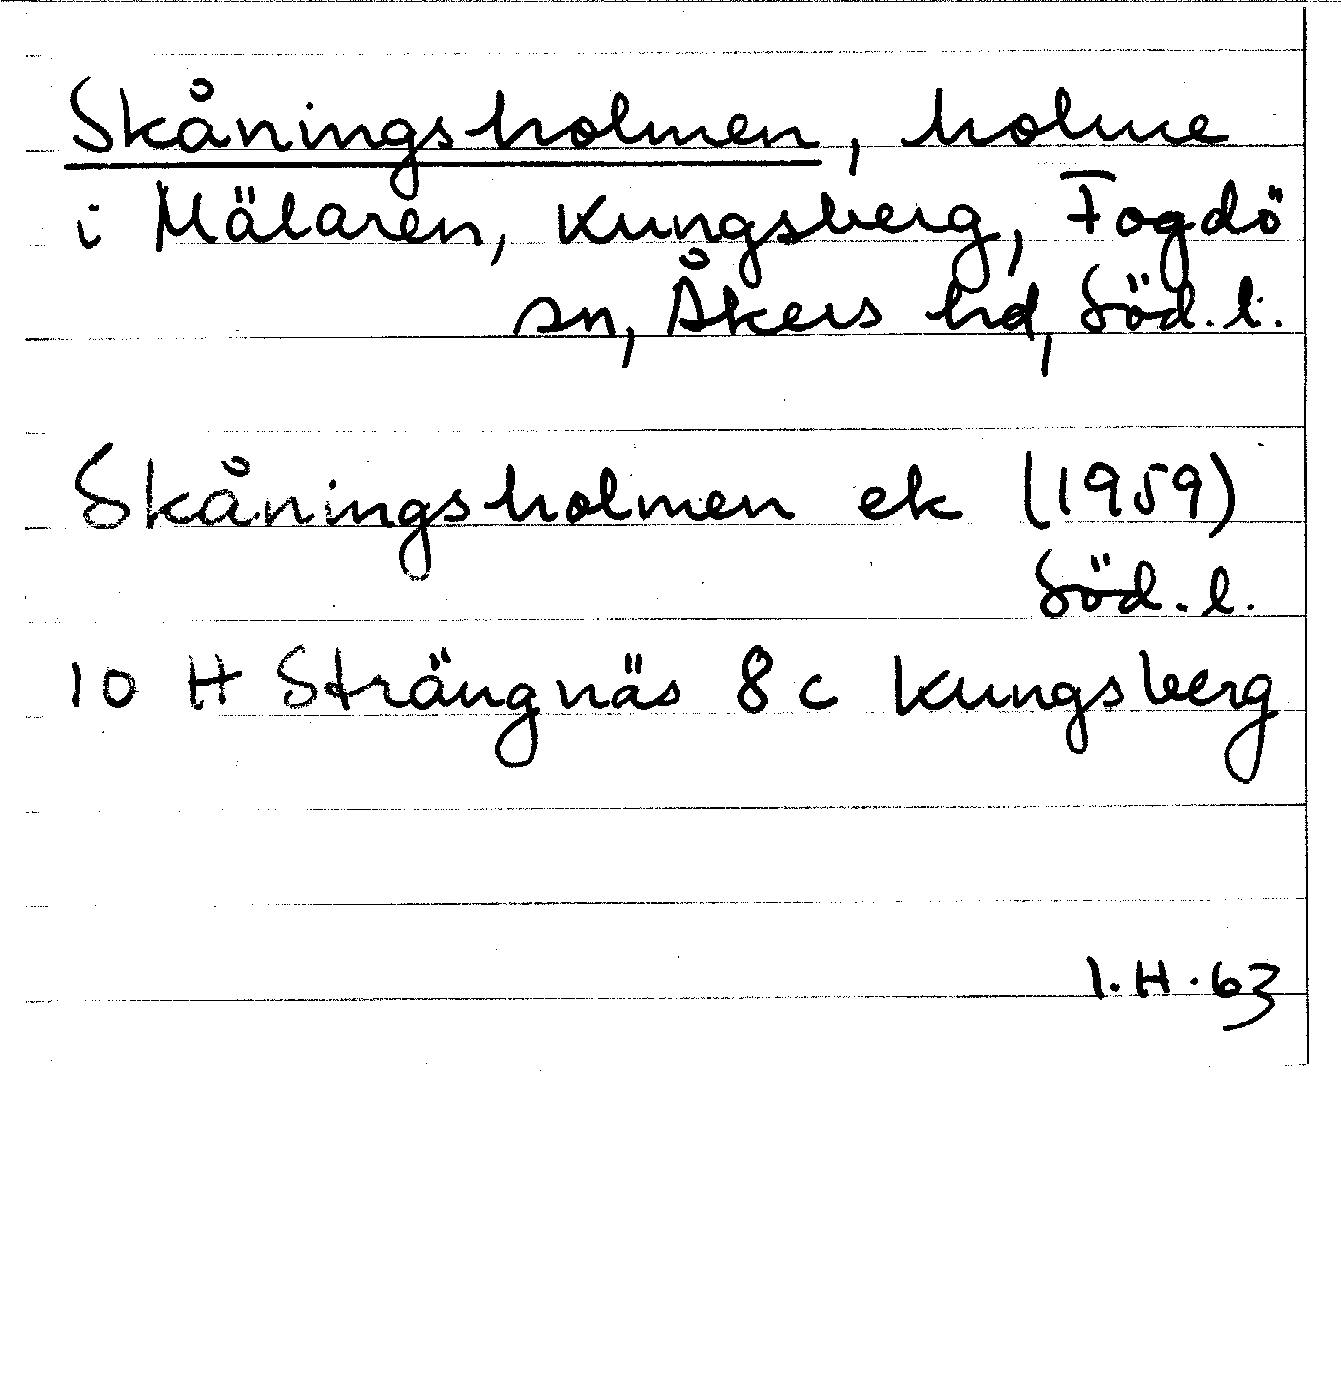 Skåningsholmen, holme
i Mälaren, Kungsberg, Fogdö
sn, Åkers hd, Söd. l.
Skåningsholmen ek (1959)
Söd. l.
10 H Strängnäs 8 c Kungsberg
I. H. 63